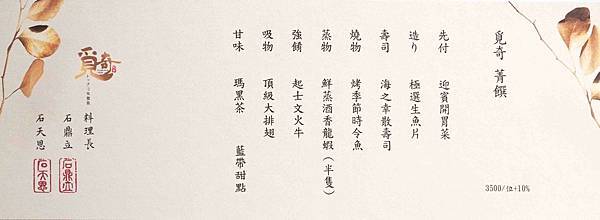 覓奇 菁饌
先付 迎賓開胃菜
造り 極選生魚片
壽司 海之幸散壽司
燒物 烤季節時令魚
蒸物 鮮蒸酒香龍蝦(半隻)
強餚 起士文火牛
吸物 頂級大排翅
甘味 瑪黑茶 藍帶甜點
3500/位+10%
料理長
石鼎立
石天恩
覓奇
石鼎立
石天恩